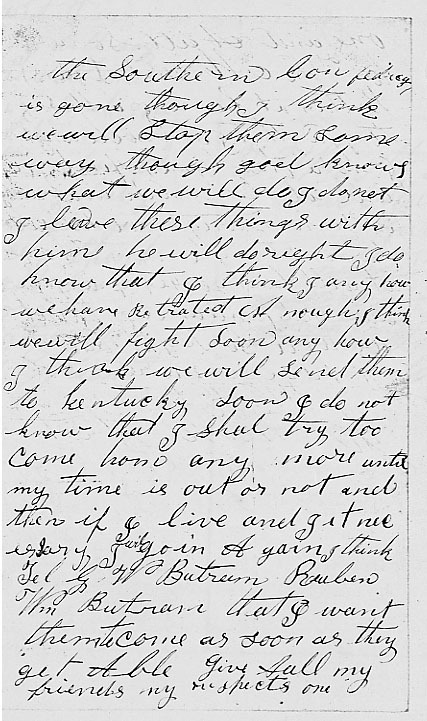 the Southern Con fedrcay
is gone though I think
we will Stop them Some
way though god knows
what we will do I do not
I leave these things with
him he will do right I do
know that I think I any how
we have Retrated Est nough I think
we will fight Soon any how
I think we will Send them
to kentucky Soon I do not
know that I Shal try too
Come hom any more until
my time is out or not and
then if I live and git nec
essary I will go in A gain I think
Tel G W Butram Reuben
Wm Butram that I want
them to come as soon as they
get Able give all my
friends my respects one